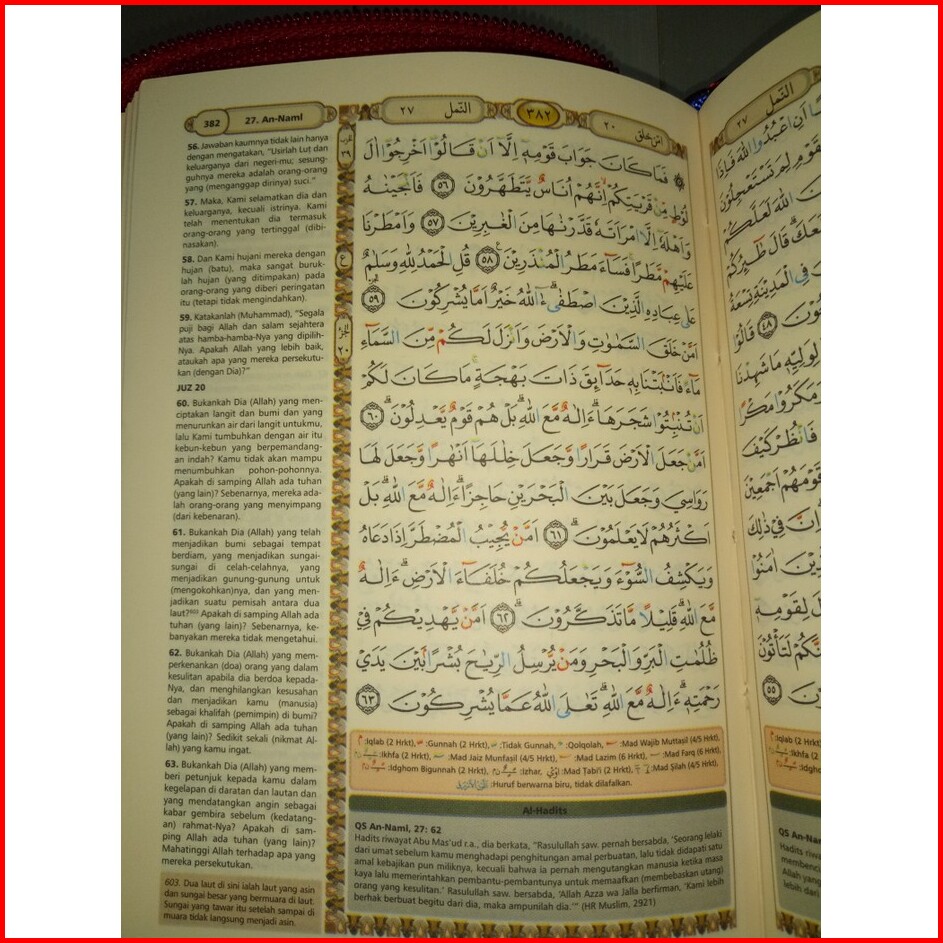 382
27. An-Naml
٢٧
النمل
٣٨٢
٢٠
امن خلق
56. Jawaban kaumnya tidak lain hanya
dengan mengatakan, "Usirlah Lut dan
keluarganya dari negeri-mu; sesung-
guhnya mereka adalah orang-orang
yang (menganggap dirinya) suci."
57. Maka, Kami selamatkan dia dan
keluarganya, kecuali istrinya. Kami
telah menentukan dia termasuk
orang-orang yang tertinggal (dibi-
nasakan).
58. Dan Kami hujani mereka dengan
hujan (batu), maka sangat buruk-
lah hujan (yang ditimpakan) pada
orang-orang yang diberi peringatan
itu (tetapi tidak mengindahkan).
59. Katakanlah (Muhammad), "Segala
puji bagi Allah dan salam sejahtera
atas hamba-hamba-Nya yang dipilih-
Nya. Apakah Allah yang lebih baik,
ataukah apa yang mereka persekutu-
kan (dengan Dia)?"
JUZ 20
60. Bukankah Dia (Allah) yang men-
ciptakan langit dan bumi dan yang
menurunkan air dari langit untukmu,
lalu Kami tumbuhkan dengan air itu
kebun-kebun yang berpemandang-
an indah? Kamu tidak akan mampu
menumbuhkan pohon-pohonnya.
Apakah di samping Allah ada tuhan
(yang lain)? Sebenarnya, mereka ada-
lah orang-orang yang menyimpang
(dari kebenaran).
61. Bukankah Dia (Allah) yang telah
menjadikan bumi sebagai tempat
berdiam, yang menjadikan sungai-
sungai di celah-celahnya, yang
menjadikan gunung-gunung untuk
(mengokohkan)nya, dan yang men-
jadikan suatu pemisah antara dua
laut?⁶⁰³ Apakah di samping Allah ada
tuhan (yang lain)? Sebenarnya, ke-
banyakan mereka tidak mengetahui.
62. Bukankah Dia (Allah) yang mem-
perkenankan (doa) orang yang dalam
kesulitan apabila dia berdoa kepada-
Nya, dan menghilangkan kesusahan
dan menjadikan kamu (manusia)
sebagai khalifah (pemimpin) di bumi?
Apakah di samping Allah ada tuhan
(yang lain)? Sedikit sekali (nikmat Al-
lah) yang kamu ingat.
63. Bukankah Dia (Allah) yang mem-
beri petunjuk kepada kamu dalam
kegelapan di daratan dan lautan dan
yang mendatangkan angin sebagai
kabar gembira sebelum (kedatang-
an) rahmat-Nya? Apakah di sam-
ping Allah ada tuhan (yang lain)?
Mahatinggi Allah terhadap apa yang
mereka persekutukan.
603. Dua laut di sini ialah laut yang asin
dan sungai besar yang bermuara di laut.
Sungai yang tawar itu setelah sampai di
muara tidak langsung menjadi asin.
۞ فَمَا كَانَ جَوَابَ قَوْمِهٖٓ اِلَّآ اَنْ قَالُوْٓا اَخْرِجُوْٓا اٰلَ
لُوْطٍ مِّنْ قَرْيَتِكُمْۙ اِنَّهُمْ اُنَاسٌ يَّتَطَهَّرُوْنَ ۝٥٦ فَاَنْجَيْنٰهُ
وَاَهْلَهٗٓ اِلَّا امْرَاَتَهٗ قَدَّرْنٰهَا مِنَ الْغٰبِرِيْنَ ۝٥٧ وَاَمْطَرْنَا
عَلَيْهِمْ مَّطَرًاۚ فَسَاۤءَ مَطَرُ الْمُنْذَرِيْنَ ۝٥٨ قُلِ الْحَمْدُ لِلّٰهِ وَسَلٰمٌ
عَلٰى عِبَادِهِ الَّذِيْنَ اصْطَفٰىۗ ءٰۤاللّٰهُ خَيْرٌ اَمَّا يُشْرِكُوْنَ ۝٥٩
اَمَّنْ خَلَقَ السَّمٰوٰتِ وَالْاَرْضَ وَاَنْزَلَ لَكُمْ مِّنَ السَّمَاۤءِ
مَاۤءً فَاَنْۢبَتْنَا بِهٖ حَدَاۤىِٕقَ ذَاتَ بَهْجَةٍۚ مَا كَانَ لَكُمْ
اَنْ تُنْۢبِتُوْا شَجَرَهَاۗ ءَاِلٰهٌ مَّعَ اللّٰهِۗ بَلْ هُمْ قَوْمٌ يَّعْدِلُوْنَ ۝٦٠
اَمَّنْ جَعَلَ الْاَرْضَ قَرَارًا وَّجَعَلَ خِلٰلَهَآ اَنْهٰرًا وَّجَعَلَ لَهَا
رَوَاسِيَ وَجَعَلَ بَيْنَ الْبَحْرَيْنِ حَاجِزًاۗ ءَاِلٰهٌ مَّعَ اللّٰهِۗ بَلْ
اَكْثَرُهُمْ لَا يَعْلَمُوْنَ ۝٦١ اَمَّنْ يُّجِيْبُ الْمُضْطَرَّ اِذَا دَعَاهُ
وَيَكْشِفُ السُّوْۤءَ وَيَجْعَلُكُمْ خُلَفَاۤءَ الْاَرْضِۗ ءَاِلٰهٌ
مَّعَ اللّٰهِۗ قَلِيْلًا مَّا تَذَكَّرُوْنَ ۝٦٢ اَمَّنْ يَّهْدِيْكُمْ فِيْ
ظُلُمٰتِ الْبَرِّ وَالْبَحْرِ وَمَنْ يُّرْسِلُ الرِّيٰحَ بُشْرًاۢ بَيْنَ يَدَيْ
رَحْمَتِهٖۗ ءَاِلٰهٌ مَّعَ اللّٰهِۗ تَعٰلَى اللّٰهُ عَمَّا يُشْرِكُوْنَ ۝٦٣
:Iqlab (2 Hrkt), :Gunnah (2 Hrkt), :Tidak Gunnah, :Qolqolah, :Mad Wajib Muttaşil (4/5 Hrkt),
:Ikhfa (2 Hrkt), :Mad Jaiz Munfaşil (4/5 Hrkt), :Mad Lazim (6 Hrkt), :Mad Farq (6 Hrkt),
:Idghom Bigunnah (2 Hrkt), :Izhar, :Mad Ţabi'i (2 Hrkt), :Mad Şilah (4/5 Hrkt),
:Huruf berwarna biru, tidak dilafalkan.
Al-Hadits
QS An-Naml, 27: 62
Hadits riwayat Abu Mas'ud r.a., dia berkata, "Rasulullah saw. pernah bersabda, 'Seorang lelaki
dari umat sebelum kamu menghadapi penghitungan amal perbuatan, lalu tidak didapati satu
amal kebajikan pun miliknya, kecuali bahwa ia pernah mengutangkan manusia ketika masa
kaya lalu memerintahkan pembantu-pembantunya untuk memaafkan (membebaskan utang)
orang yang kesulitan.' Rasulullah saw. bersabda, 'Allah Azza wa Jalla berfirman, 'Kami lebih
berhak berbuat begitu dari dia, maka ampunilah dia.'" (HR Muslim, 2921)
٢٧
النمل